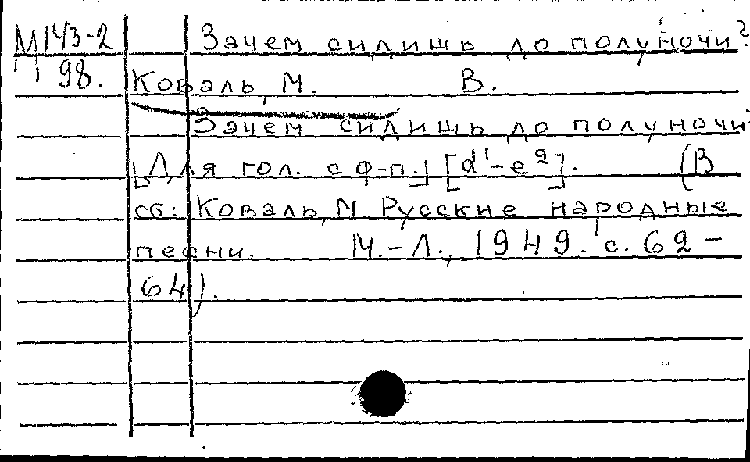 М143-2 Зачем сидишь до полуночи?
98. Коваль, М. В.
Зачем сидишь до полуночи
[Для гол. с ф-п.] [d¹-e²]. (В
сб: Коваль, М Русские народные
песни. М.-Л., 1949. с. 62-
64).